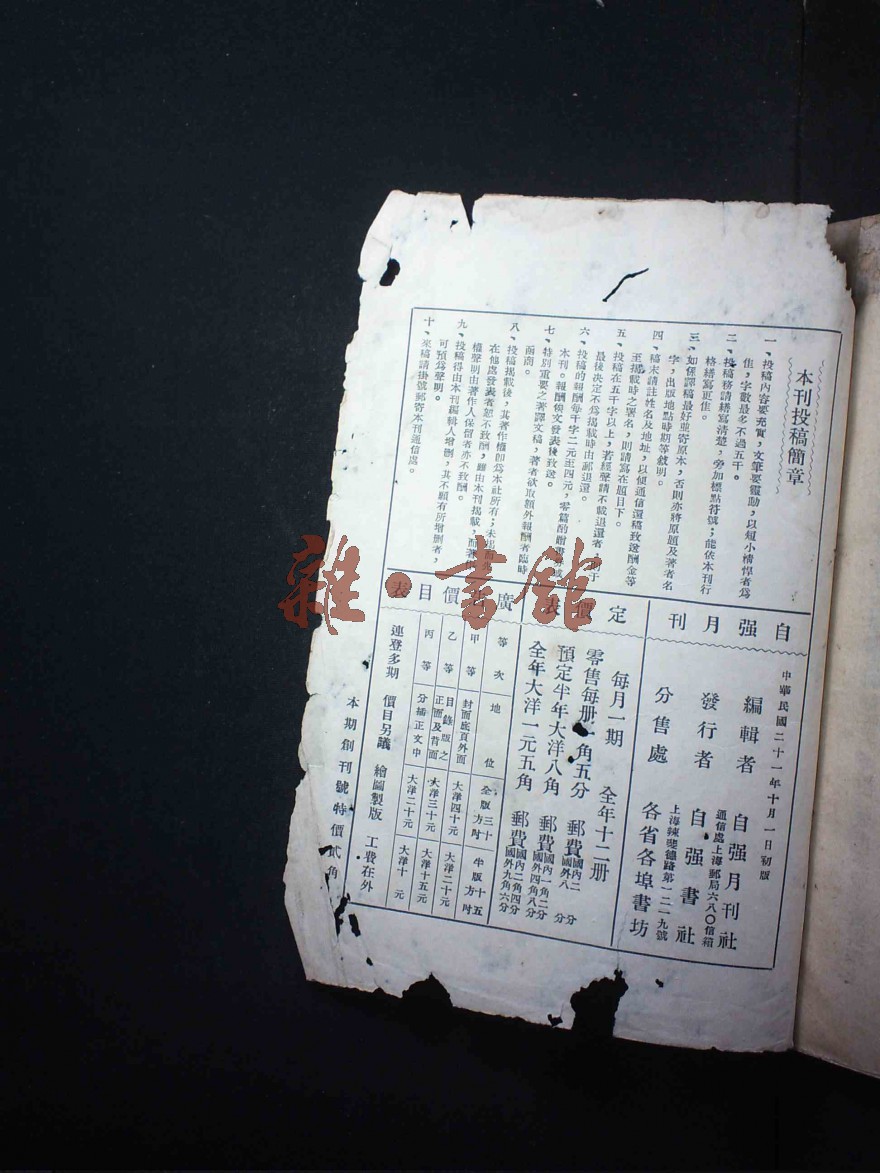 本刊投稿簡章
一、投稿內容要充實，文筆要靈動，以短小精悍者爲
佳，字數最多不過五千。
二、投稿務請繕寫清楚，旁加標點符號；能依本刊行
格繕寫更佳。
三、如係譯稿最好並寄原本，否則亦將原題及著者名
字，出版地點時期等敍明。
四、稿末請註姓名及地址，以便通信還稿致送酬金等
至揭載時之署名，則請寫在題目下。
五、投稿在五千字以上，若經聲請不載退還者，
最後決定不爲揭載時由郵退還。
六、投稿的報酬每千字二元至四元，零篇酌贈書
本刊。報酬俟文發表後致送。
七、特別重要之著譯文稿，著者欲取額外報酬者臨時
面商。
八、投稿揭載後，其著作權即爲本社所有；未
在他處發表者恕不致酬，雖由本刊揭載，而著作
權聲明由著作人保留者亦不致酬。
九、投稿得由本刊編輯人增刪，其不願有所增刪者，
可預爲聲明。
十、來稿請掛號郵寄本刊通信處。
自强月刊
中華民國二十一年十月一日初版
編輯者 自强月刊社
通信處上海郵局六八〇信箱
發行者 自强書社
上海辣斐德路第一二一九號
分售處 各省各埠書坊
定價表
每月一期 全年十二册
零售每册一角五分 郵費國內二分 國外八分
預定半年大洋八角 郵費國內一角二分 國外四角八分
全年大洋一元五角 郵費國內二角四分 國外九角六分
廣告價目表
等次 地位 全版三十方吋 半版十五方吋
甲等 封面底頁外面 大洋四十元 大洋二十元
乙等 目錄版之正面及背面 大洋三十元 大洋十五元
丙等 分插正文中 大洋二十元 大洋十元
連登多期 價目另議 繪圖製版 工費在外
本期創刊號特價貳角
雜·書館